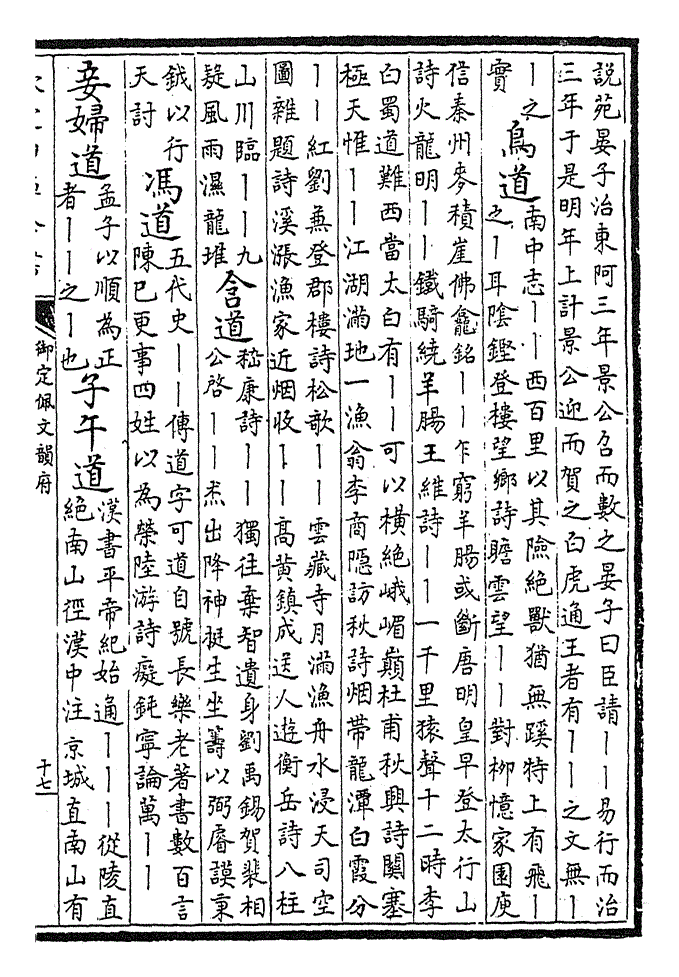 說苑晏子治東阿三年景公召而數之晏子曰臣請丨丨易行而治
三年于是明年上計景公迎而賀之白虎通王者有丨丨之文無丨
丨之
實
鳥道
南中志丨丨西百里以其險絕獸猶無蹊特上有飛丨
之丨耳陰鏗登樓望鄉詩瞻雲望丨丨對柳憶家園庾
信秦州麥積崖佛龕銘丨丨乍窮羊腸或斷唐明皇早登太行山
詩火龍明丨丨鐵騎繞羊腸王維詩丨丨一千里猿聲十二時李
白蜀道難西當太白有丨丨可以橫絕峨嵋巔杜甫秋興詩關塞
極天惟丨丨江湖滿地一漁翁李商隱訪秋詩烟帶龍潭白霞分
丨丨紅劉兼登郡樓詩松歌丨丨雲藏寺月滿漁舟水浸天司空
圖雜題詩溪漲漁家近烟收丨丨高黃鎮成送人遊衡岳詩八柱
山川臨丨丨九
疑風雨濕龍堆
含道
嵇康詩丨丨獨往棄智遺身劉禹錫賀裴相
公啓丨丨杰出降神挺生坐籌以弼睿謨秉
鉞以行
天討
馮道
五代史丨丨傳道字可道自號長樂老著書數百言
陳已更事四姓以為榮陸游詩癡鈍寧論萬丨丨
妾婦道
孟子以順為正
者丨丨之丨也
子午道
漢書平帝紀始通丨丨丨從陵直
絕南山徑漢中注京城直南山有
御定佩文韻府
十七